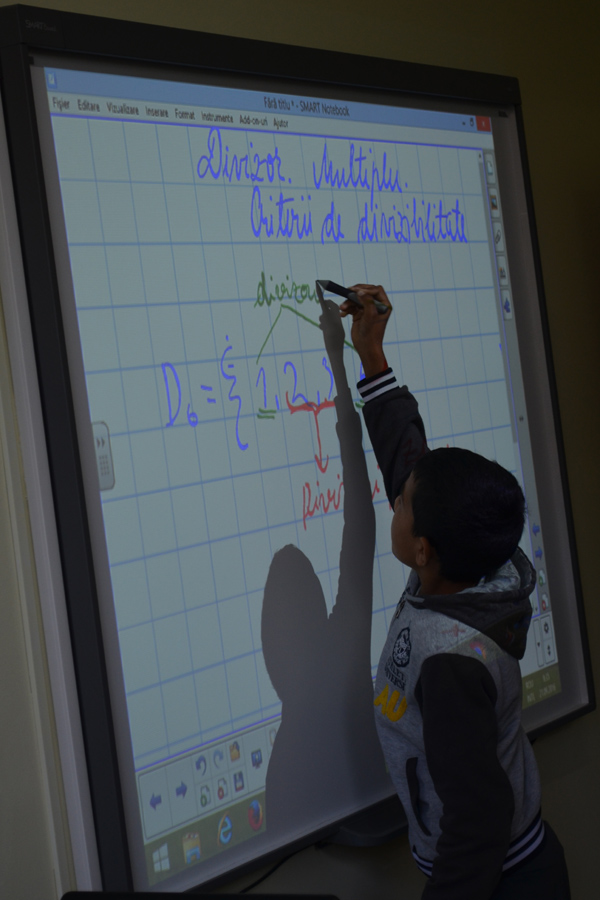 SMART
Fără titlu * - SMART Notebook
Fişier Editare Vizualizare Inserare Format Instrumente Add-on-uri Ajutor
Divizor. Multiplu.
Criterii de divizibilitate
divizori
D6 = { 1, 2, 3